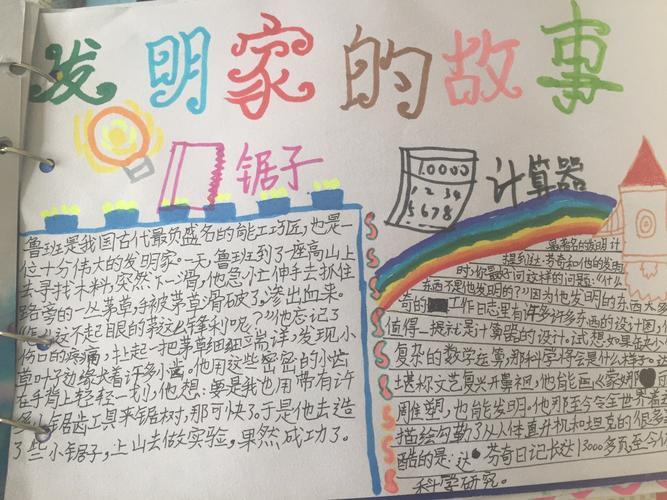 发明家的故事
锯子
鲁班是我国古代最负盛名的能工巧匠,也是一
位十分伟大的发明家。一天鲁班到了座高山上
去寻找木料,突然下一滑,他急忙伸手去抓住
路旁的一丛茅草,手被茅草滑破了,渗出血来。
这不起眼的茅这么锋利呢?”他忘记了
伤口的疼痛,扯起一把茅草细细端详,发现小
草叶子边缘长着许多小齿。他用这些密密的小齿
在手背上轻轻一划,他想:要是我也用带有许
多小锯齿工具来锯树,那可快了。于是他去造
了些小锯子,上山去做实验,果然成功了。
计算器
1.0000
1 2 3 4
5 6 7 8
最著名的发明计
提到达·芬奇和他的发明
时,你最好问这样的问题:“什么
东西不是他发明的?”因为他发明的东西太多
奇的工作日志里有许多许多东西的设计图
值得一提就是计算器的设计。试想如果在缺少
复杂的数学运算,那科学将会是什么样子。
堪称文艺复兴开鼻祖,他能画《蒙娜
雕塑,也能发明。他那至今令世界着
描绘勾勒了从人体直升机和坦克的很
酷的是:达芬奇日记长达13000多页至今
科学研究。